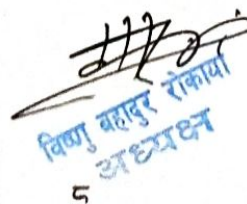 विष्णु बहादुर रोकाया
अध्यक्ष
८